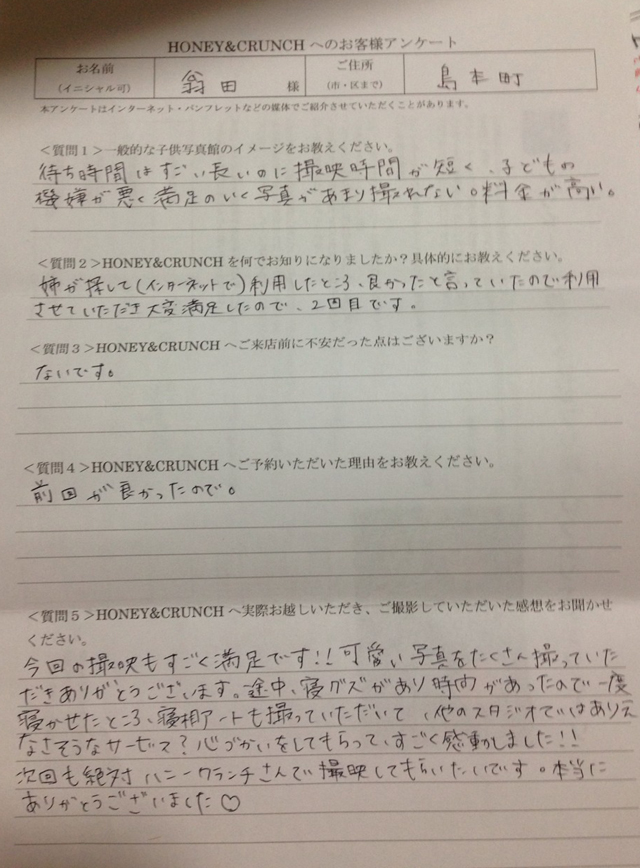 HONEY&CRUNCH へのお客様アンケート
お名前 (イニシャル可) 翁田 様 ご住所 (市・区まで) 島本町
本アンケートはインターネット・パンフレットなどの媒体でご紹介させていただくことがあります。
＜質問1＞一般的な子供写真館のイメージをお教えください。
待ち時間はすごい長いのに撮映時間が短く、子どもの
機嫌が悪く満足のいく写真があまり撮れない。料金が高い。
＜質問2＞HONEY&CRUNCH を何でお知りになりましたか？具体的にお教えください。
姉が探して(インターネットで)利用したところ、良かったと言っていたので利用
させていただき大変満足したので、2回目です。
＜質問3＞HONEY&CRUNCH へご来店前に不安だった点はございますか？
ないです。
＜質問4＞HONEY&CRUNCH へご予約いただいた理由をお教えください。
前回が良かったので。
＜質問5＞HONEY&CRUNCH へ実際お越しいただき、ご撮影していただいた感想をお聞かせ
ください。
今回の撮映もすごく満足です!!可愛い写真をたくさん撮っていた
だきありがとうございます。途中、寝グズがあり時間があったので一度
寝かせたところ、寝相アートも撮っていただいて、他のスタジオではありえ
なさそうなサービス？心づかいをしてもらって、すごく感動しました!!
次回も絶対ハニークランチさんで撮映してもらいたいです。本当に
ありがとうございました♡